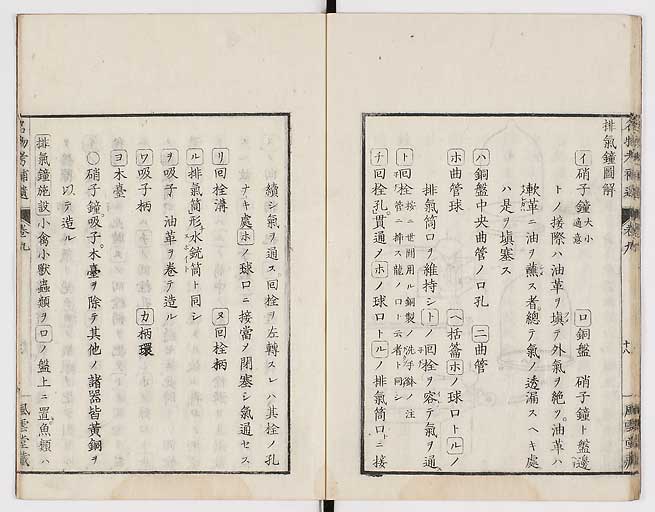 排氣鐘圖解
イ 硝子鐘 大小適意 ロ 銅盤 硝子鐘ト盤邊
トノ接際ハ油革ヲ塡テ外氣ヲ絶ツ。油革ハ
軟革ニ油ヲ蘸ス者。總テ氣ノ透漏スヘキ處
ハ是ヲ塡塞ス
ハ 銅盤中央曲管ノロ孔 ニ 曲管
ホ 曲管球 ヘ 括籥 ホノ球ロトルノ
排氣筒ロヲ維持シトノ回栓ヲ容テ氣ヲ通
ト 回栓 按ニ世間用ル銅製洗子鉢ノ注管ニ挿ス龍ノロト云者ト同シ
チ 回栓孔。貫通ノホノ球ロトルノ排氣筒ロニ接
續シ氣ヲ通ス。回栓ヲ左轉スレハ其栓ノ孔
ナキ處ホノ球ロニ接當ノ閉塞シ氣通セス
リ 回栓溝 ヌ 回栓柄
ル 排氣筒形水銃筒ト同シ
ヲ 吸子 油革ヲ卷テ造ル
ワ 吸子柄 カ 柄環
ヨ 木臺
〇硝子鐘。吸子。木臺ヲ除テ其他ノ諸器皆黃銅ヲ
以テ造ル
排氣鐘施設 小禽小獸蟲類ヲロノ盤上ニ置。魚類ハ
名物考補遺 卷九
風雲堂藏